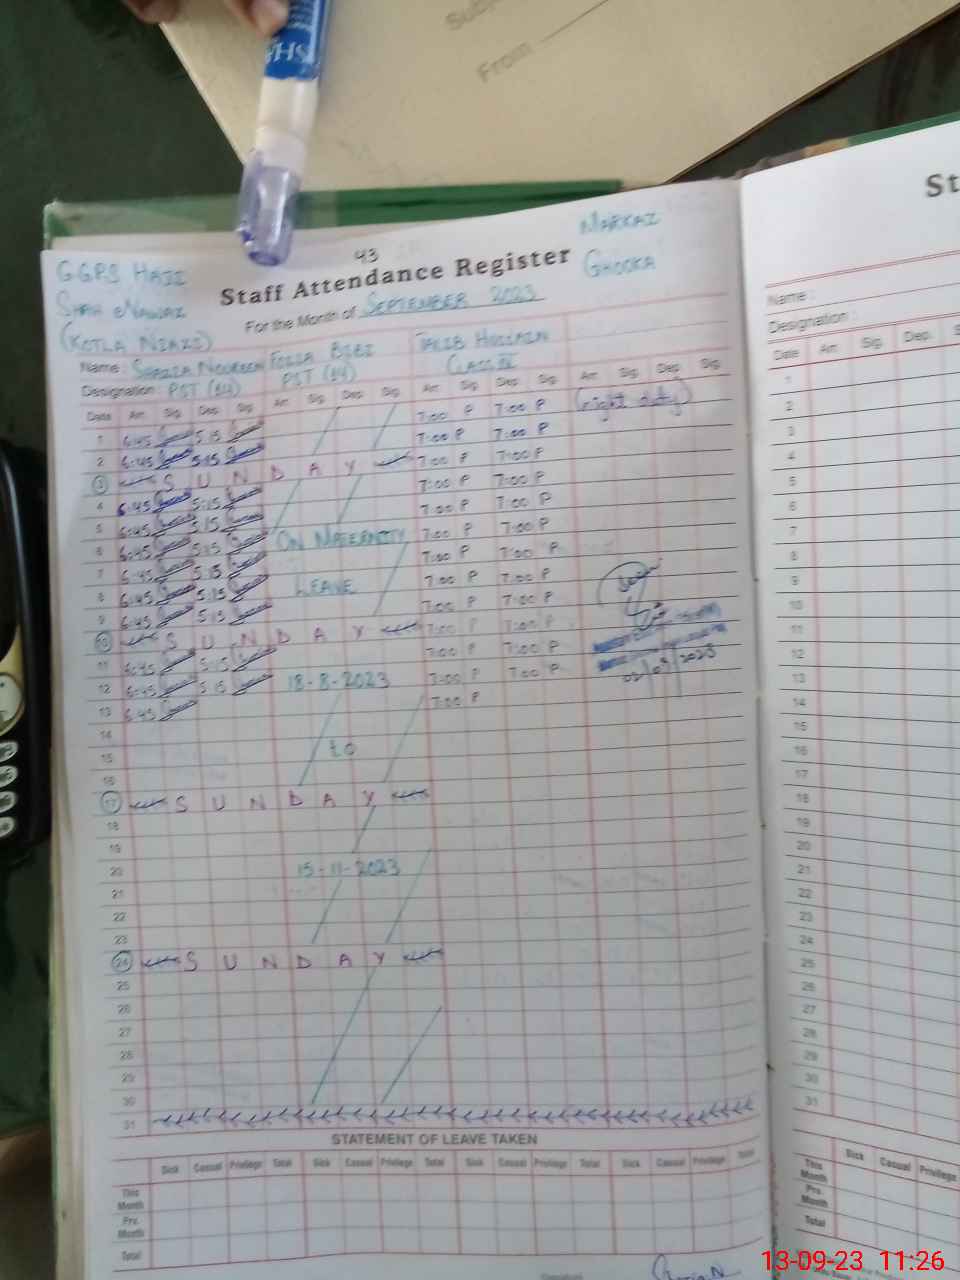 Subj
From
SHA
43
GGPS HAJI
SHAH eNAWAZ
(KOTLA NIAZI)
Staff Attendance Register
MARKAZ
GHOOKA
For the Month of SEPTEMBER 2023
Name : SHAZIA NOUREEN FOZIA BIBI TALIB HUSSAIN
Designation : PST (B4) PST (B4) CLASS IV
Date Arr. Sig. Dep. Sig. Arr. Sig. Dep. Sig. Arr. Sig. Dep. Sig. Arr. Sig. Dep. Sig.
(night duty)
1 6:45 5:15 7:00 P 7:00 P
2 6:45 5:15 7:00 P 7:00 P
3 SUNDAY 7:00 P 7:00 P
4 6:45 5:15 7:00 P 7:00 P
5 6:45 5:15 7:00 P 7:00 P
6 6:45 5:15 ON MATERNITY 7:00 P 7:00 P
7 6:45 5:15 7:00 P 7:00 P
8 6:45 5:15 LEAVE 7:00 P 7:00 P
9 6:45 5:15 7:00 P 7:00 P
10 SUNDAY 7:00 P 7:00 P
11 6:45 5:15 7:00 P 7:00 P
12 6:45 5:15 18-8-2023 7:00 P 7:00 P
13 6:45 7:00 P
14
15 to
16
17 SUNDAY
18
19
20 15-11-2023
21
22
23
24 SUNDAY
25
26
27
28
29
30
31
STATEMENT OF LEAVE TAKEN
Sick Casual Privilege Total Sick Casual Privilege Total Sick Casual Privilege Total Sick Casual Privilege Total
This Month
Prv. Month
Total
St
Name :
Designation :
Date Arr. Sig. Dep. S
1
2
3
4
5
6
7
8
9
10
11
12
13
14
15
16
17
18
19
20
21
22
23
24
25
26
27
28
29
30
31
Sick Casual Privilege
This Month
Prv. Month
Total
13-09-23 11:26